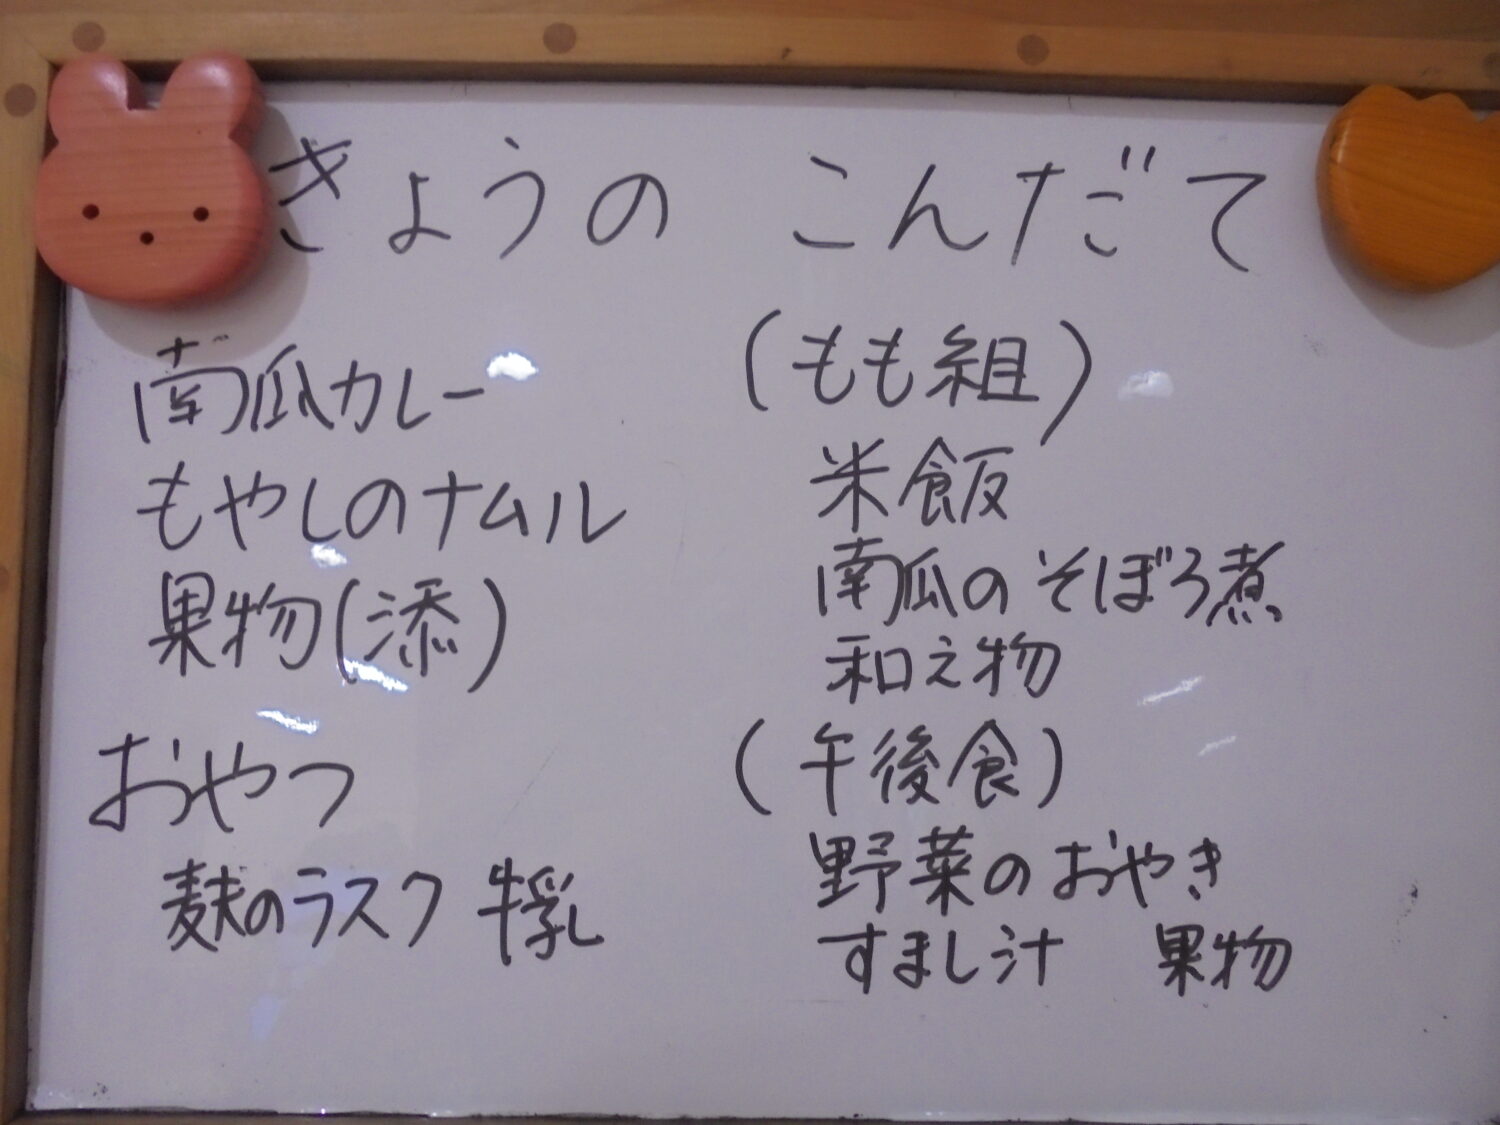 きょうの こんだて
南瓜カレー
もやしのナムル
果物(添)
おやつ
麩のラスク 牛乳
(もも組)
米飯
南瓜のそぼろ煮
和え物
(午後食)
野菜のおやき
すまし汁 果物